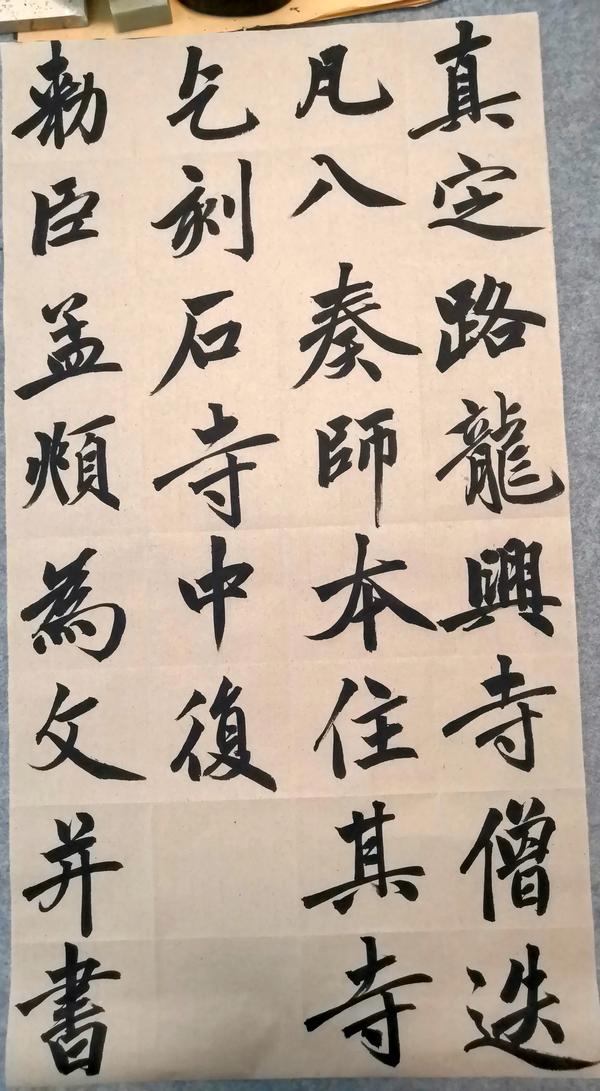 真定路龍興寺僧迭
凡八奏師本住其寺
乞刻石寺中復
勅臣孟頫為文并書